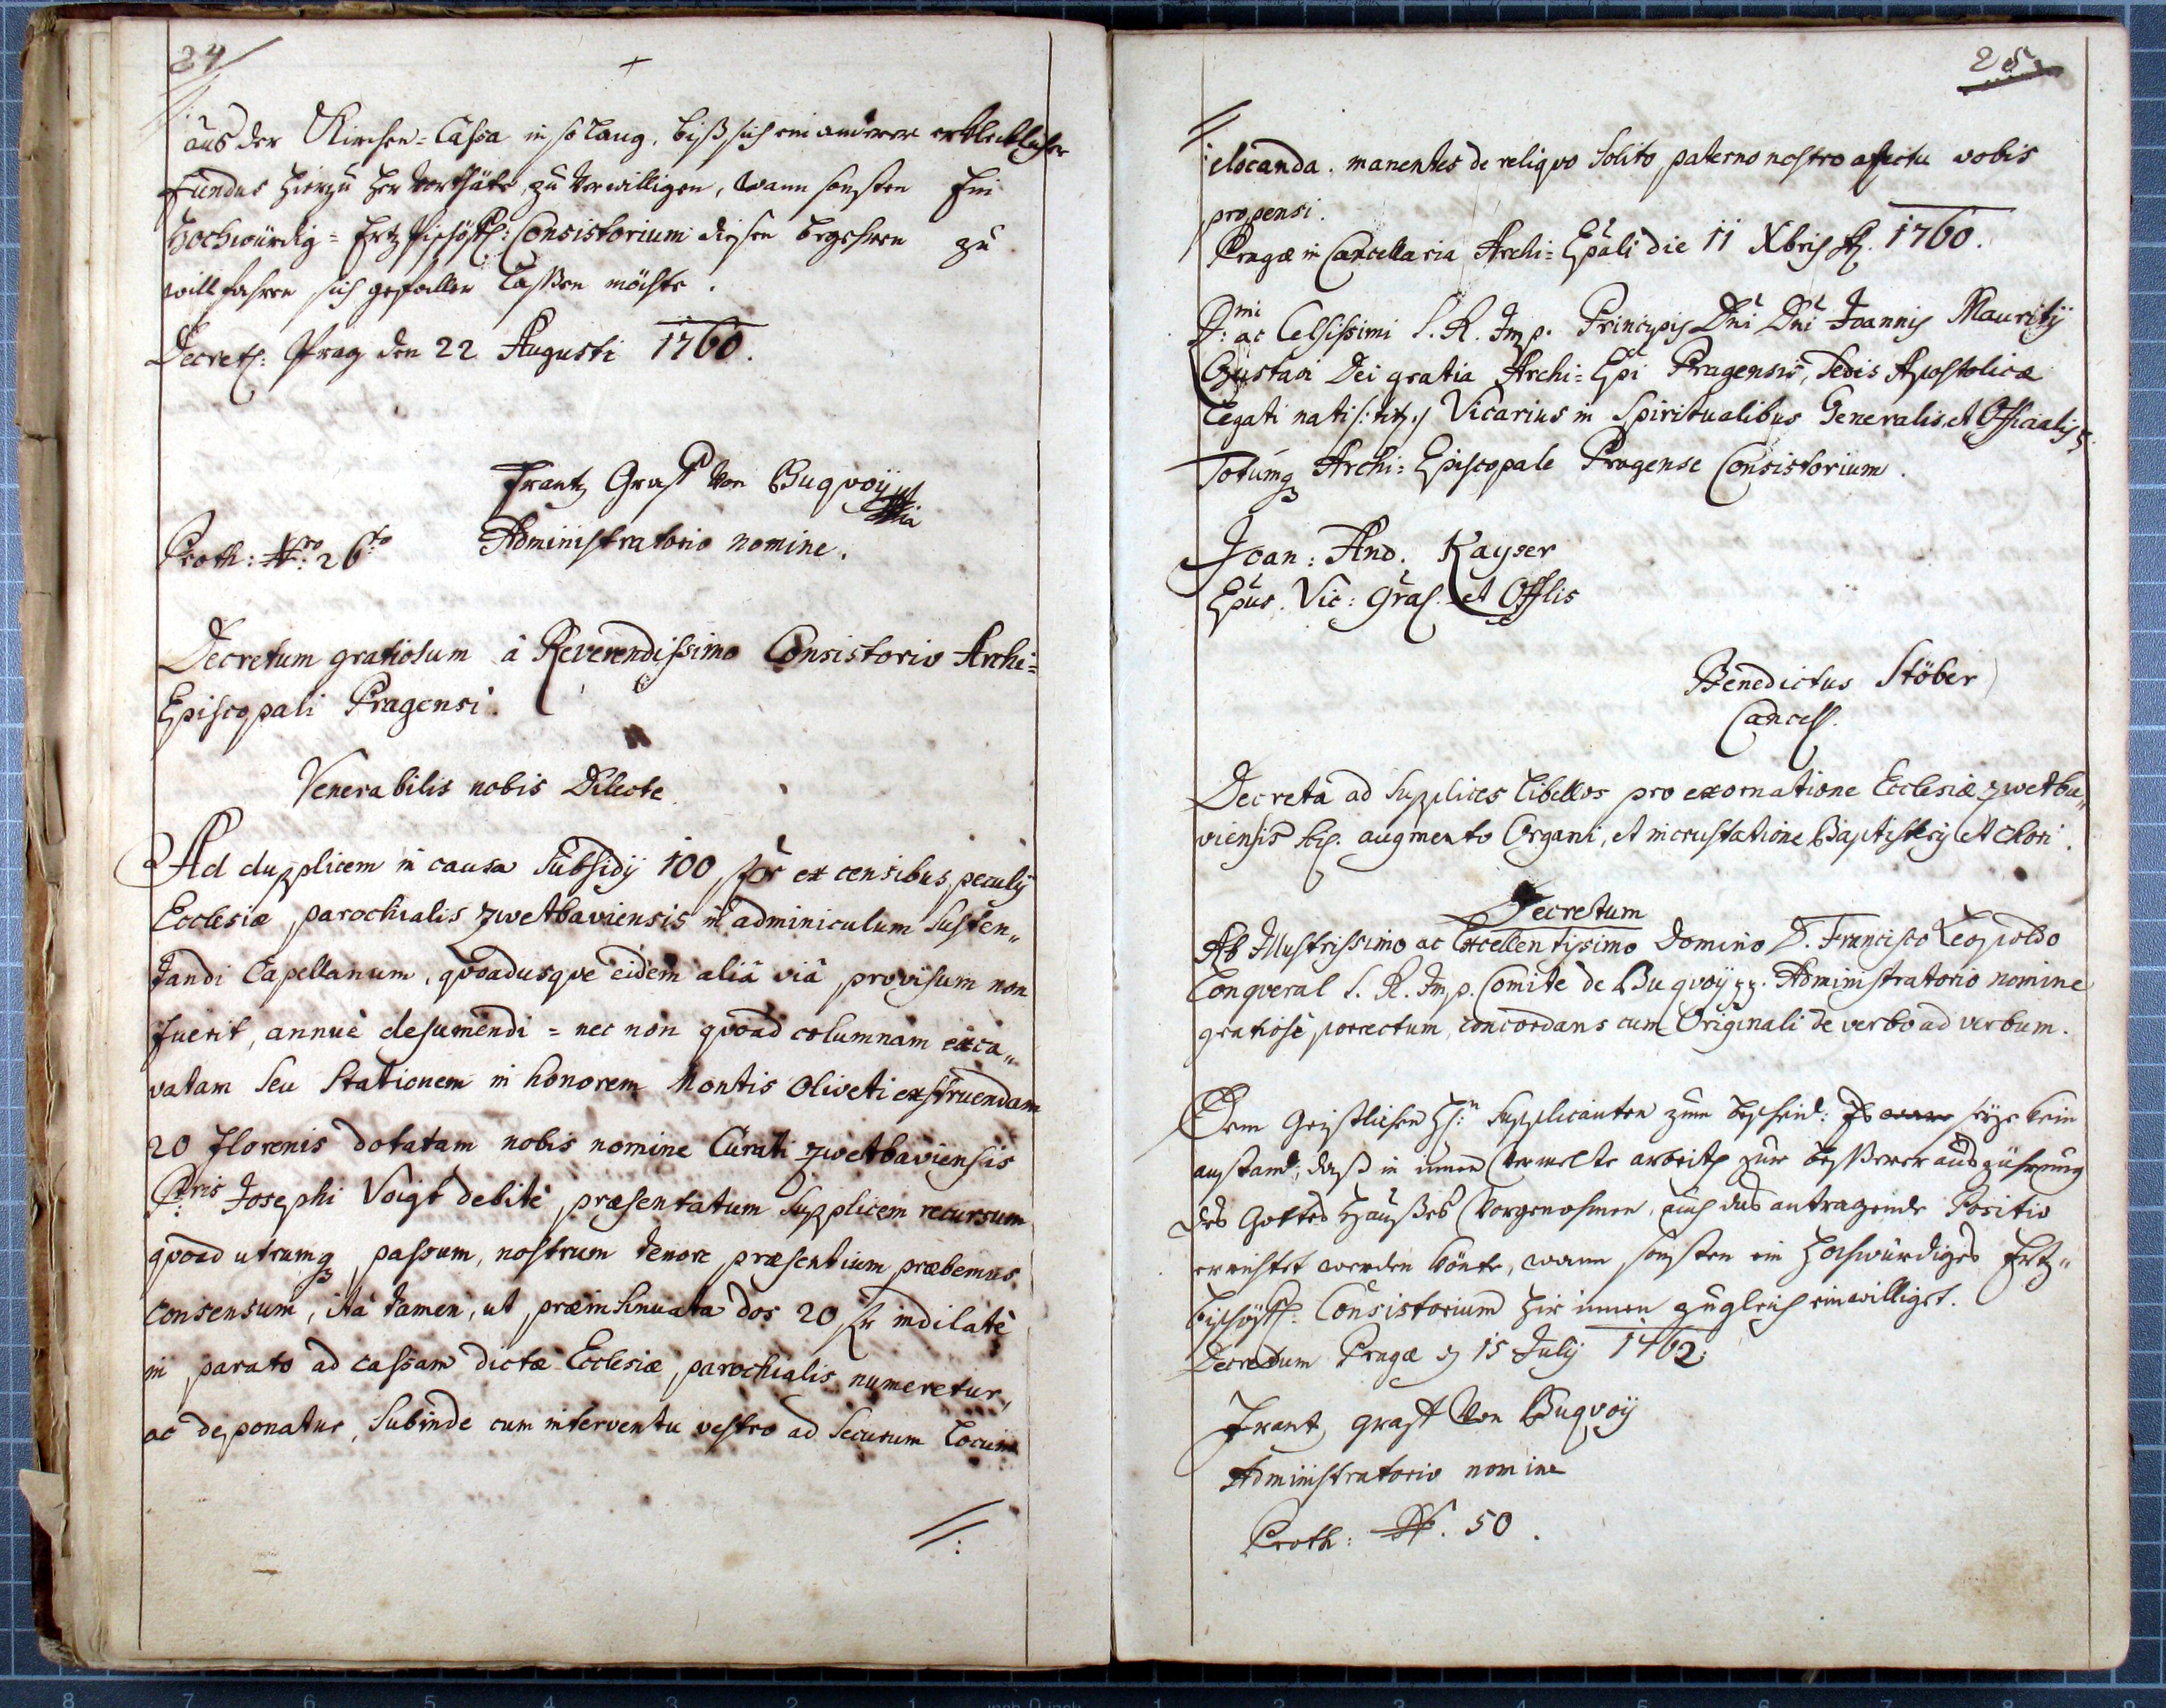 24
aus der Kirchen=Cassa in so lang, biß sich ein anderer erklecklicher
Fundus hierzu hervorthäte, zu verwilligen, wann sonsten Ein
Hochwürdig=Ertz Bischöffl: Consistorium diesen begehren zu
willfahren sich gefallen lassen möchte.
Decret: Prag den 22 Augusti 1760.
Frantz Graff von Buqvoÿ
Proth: Nro: 26to Administratorio nomine.
Decretum gratiosum â Reverendissimo Consistorio Archi=
Episcopali Pragensi.
Venerabilis nobis Dilecte
Ad dupplicem in causa Subsidÿ 100 flor ex censibus peculÿ
Ecclesiæ parochialis Zwetbaviensis in adminiculum susten„
tandi Capellanum, qvoadusqve eidem aliâ viâ provisum non
fuerit, annuè desumendi = nec non qvoad columnam exca„
vatam seu Stationem in honorem Montis Oliveti exstruendam
20 florenis dotatam nobis nomine Curati Zwetbaviensis
P:tris Josephi Voigt debitè præsentatum supplicem recursum
qvoad utrumq passum, nostrum tenore præsentium præbemus
consensum, ità tamen, ut præinsinuata dos 20 fr indilatè
in parato ad cassam dictæ Ecclesiæ parochialis numeretur,
ac deponatur, subinde cum interventu vestro ad securum locum
//:
25
//:
elocanda. manentes de reliqvo solito paterno nostro affectu vobis
propensi.
Pragæ in Cancellaria Archi=Epali die 11 Xbris 1760.
R:mi ac Celsissimi S. R. Imp. Principis Dni Dni Joannis Mauritÿ
Gustavi Dei gratia Archi=Epi Pragensis, Sedis Apostolicæ
Legati nati /: tit :/ Vicarius in Spiritualibus Generalis et Officialis
Totumq Archi=Episcopale Pragense Consistorium.
Joan: And. Kayser
Epus. Vic: Gral. et Offlis
Benedictus Stöber
Cancell.
Decreta ad supplices libellos pro exornatione Ecclesiæ Zwetba„
viensis augmento Organi, et incrustatione Baptisterÿ et chori.
Decretum
Ab Illustrissimo ac Excellentissimo Domino D. Francisco Leopoldo
Longveral S. R. Imp. Comite de Buqvoÿ Administratorio nomine
gratiosè porrectum, concordans cum Originali de verbo ad verbum.
Dem Geistlichen H:n Supplicanten zum bescheid: Es ware seÿe kein
anstand, daß in innen vermelte arbeith zur besserer ausführung
des Gottes Haußes vorgenohmen, auch das antragende Positiv
errichtet werden könte, wann sonsten ein Hochwürdiges Ertz„
bischöffl: Consistorium hir innen zugleich einwilliget.
Decretum Pragæ 15 Julÿ 1762.
Frantz graff von Buqvoÿ
Administratorio nomine
Proth: N. 50.